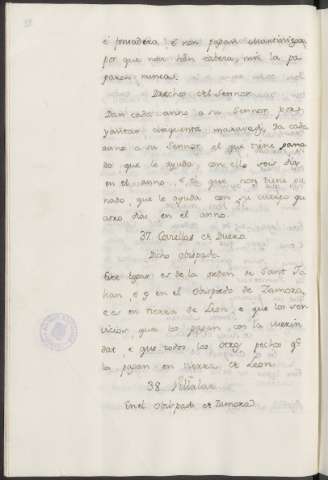 é fonsadera é non pagan
por que non han cabeza, nin la pa
garon nunca.
Derechos del Sennor
Dan cada anno a su Sennor por
yantar cinquenta maravedis, Da cada
anno a su Sennor el que tiene gana
do que le ayuda con ello seis dias
en el anno. E, el que non tiene ga
nado, que le ayuda con su cuerpo qu
atro dias, en el anno.
37 Cuvellas de Duero
Dicho obispado
Este logar es de la orden de Sant Jo
han, e es en el Obispado de Zamora,
e es en tierra de Leon, e que los ser
vicios, que los pagan con la
dat, e que todos los otros pechos que
los pagan en tierra de Leon.
38 Villalar
En el Obispado de Zamora